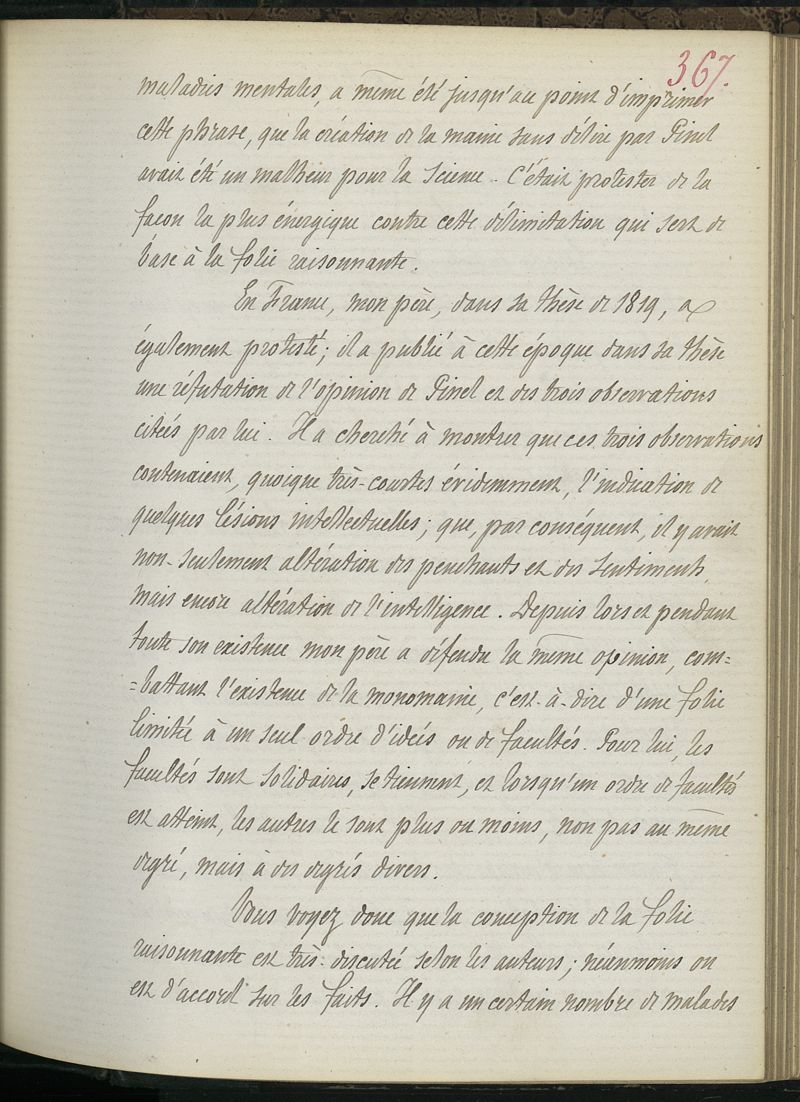 367.
maladies mentales, a même été jusqu'au point d'imprimer
cette phrase, que la création de la manie sans délire par Pinel
avait été un malheur pour la Science. C'était protester de la
façon la plus énergique contre cette délimitation qui sert de
base à la folie raisonnante.
En France, mon père, dans sa thèse de 1819, a
également protesté; il a publié à cette époque dans sa thèse
une réfutation de l'opinion de Pinel et des trois observations
citées par lui. Il a cherché à montrer que ces trois observations
contenaient, quoique très-courtes évidemment, l'indication de
quelques lésions intellectuelles; que, par conséquent, il y avait
non-seulement altération des penchants et des sentiments,
mais encore altération de l'intelligence. Depuis lors et pendant
toute son existence mon père a défendu la même opinion, com=
=battant l'existence de la monomanie, c'est-à-dire d'une folie
limitée à un seul ordre d'idées ou de facultés. Pour lui, les
facultés sont solidaires, se tiennent, et lorsqu'un ordre de facultés
est atteint, les autres le sont plus ou moins, non pas au même
degré, mais à des degrés divers.
Vous voyez donc que la conception de la folie
raisonnante est très-discutée selon les auteurs; néanmoins on
est d'accord sur les faits. Il y a un certain nombre de malades